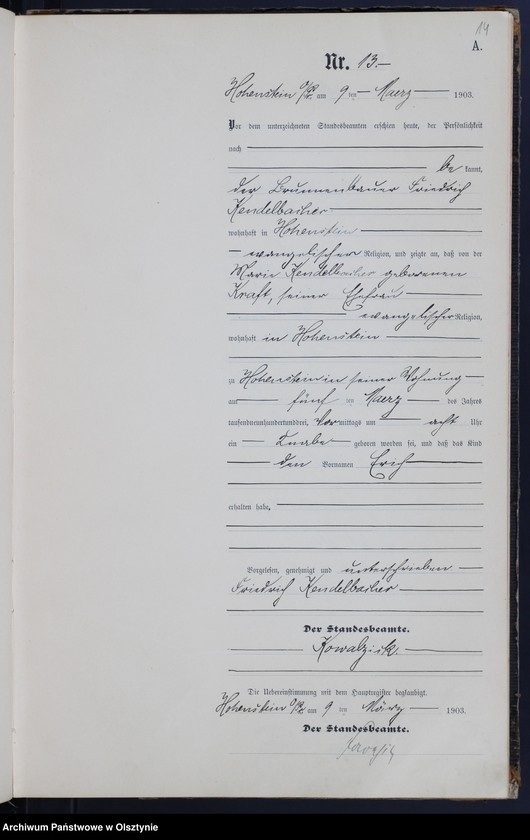 14
A.
Nr. 13.
Hohenstein O/Pr. am 9 ten Maerz 1903.
Vor dem unterzeichneten Standesbeamten erschien heute, der Persönlichkeit
nach
be kannt,
der Brunnenbauer Friedrich
Kendelbacher
wohnhaft in Hohenstein
evangelischer Religion, und zeigte an, daß von der
Marie Kendelbacher geborenen
Kraft, seiner Ehefrau
evangelischer Religion,
wohnhaft in Hohenstein
zu Hohenstein in seiner Wohnung
am fünf ten Maerz des Jahres
tausendneunhundertunddrei, Vor mittags um acht Uhr
ein Knabe geboren worden sei, und daß das Kind
den Vornamen Erich
erhalten habe.
Vorgelesen, genehmigt und unterschrieben
Friedrich Kendelbacher
Der Standesbeamte.
Kowalzick.
Die Uebereinstimmung mit dem Hauptregister beglaubigt.
Hohenstein O/Pr. am 9 ten März 1903.
Der Standesbeamte.
Archiwum Państwowe w Olsztynie